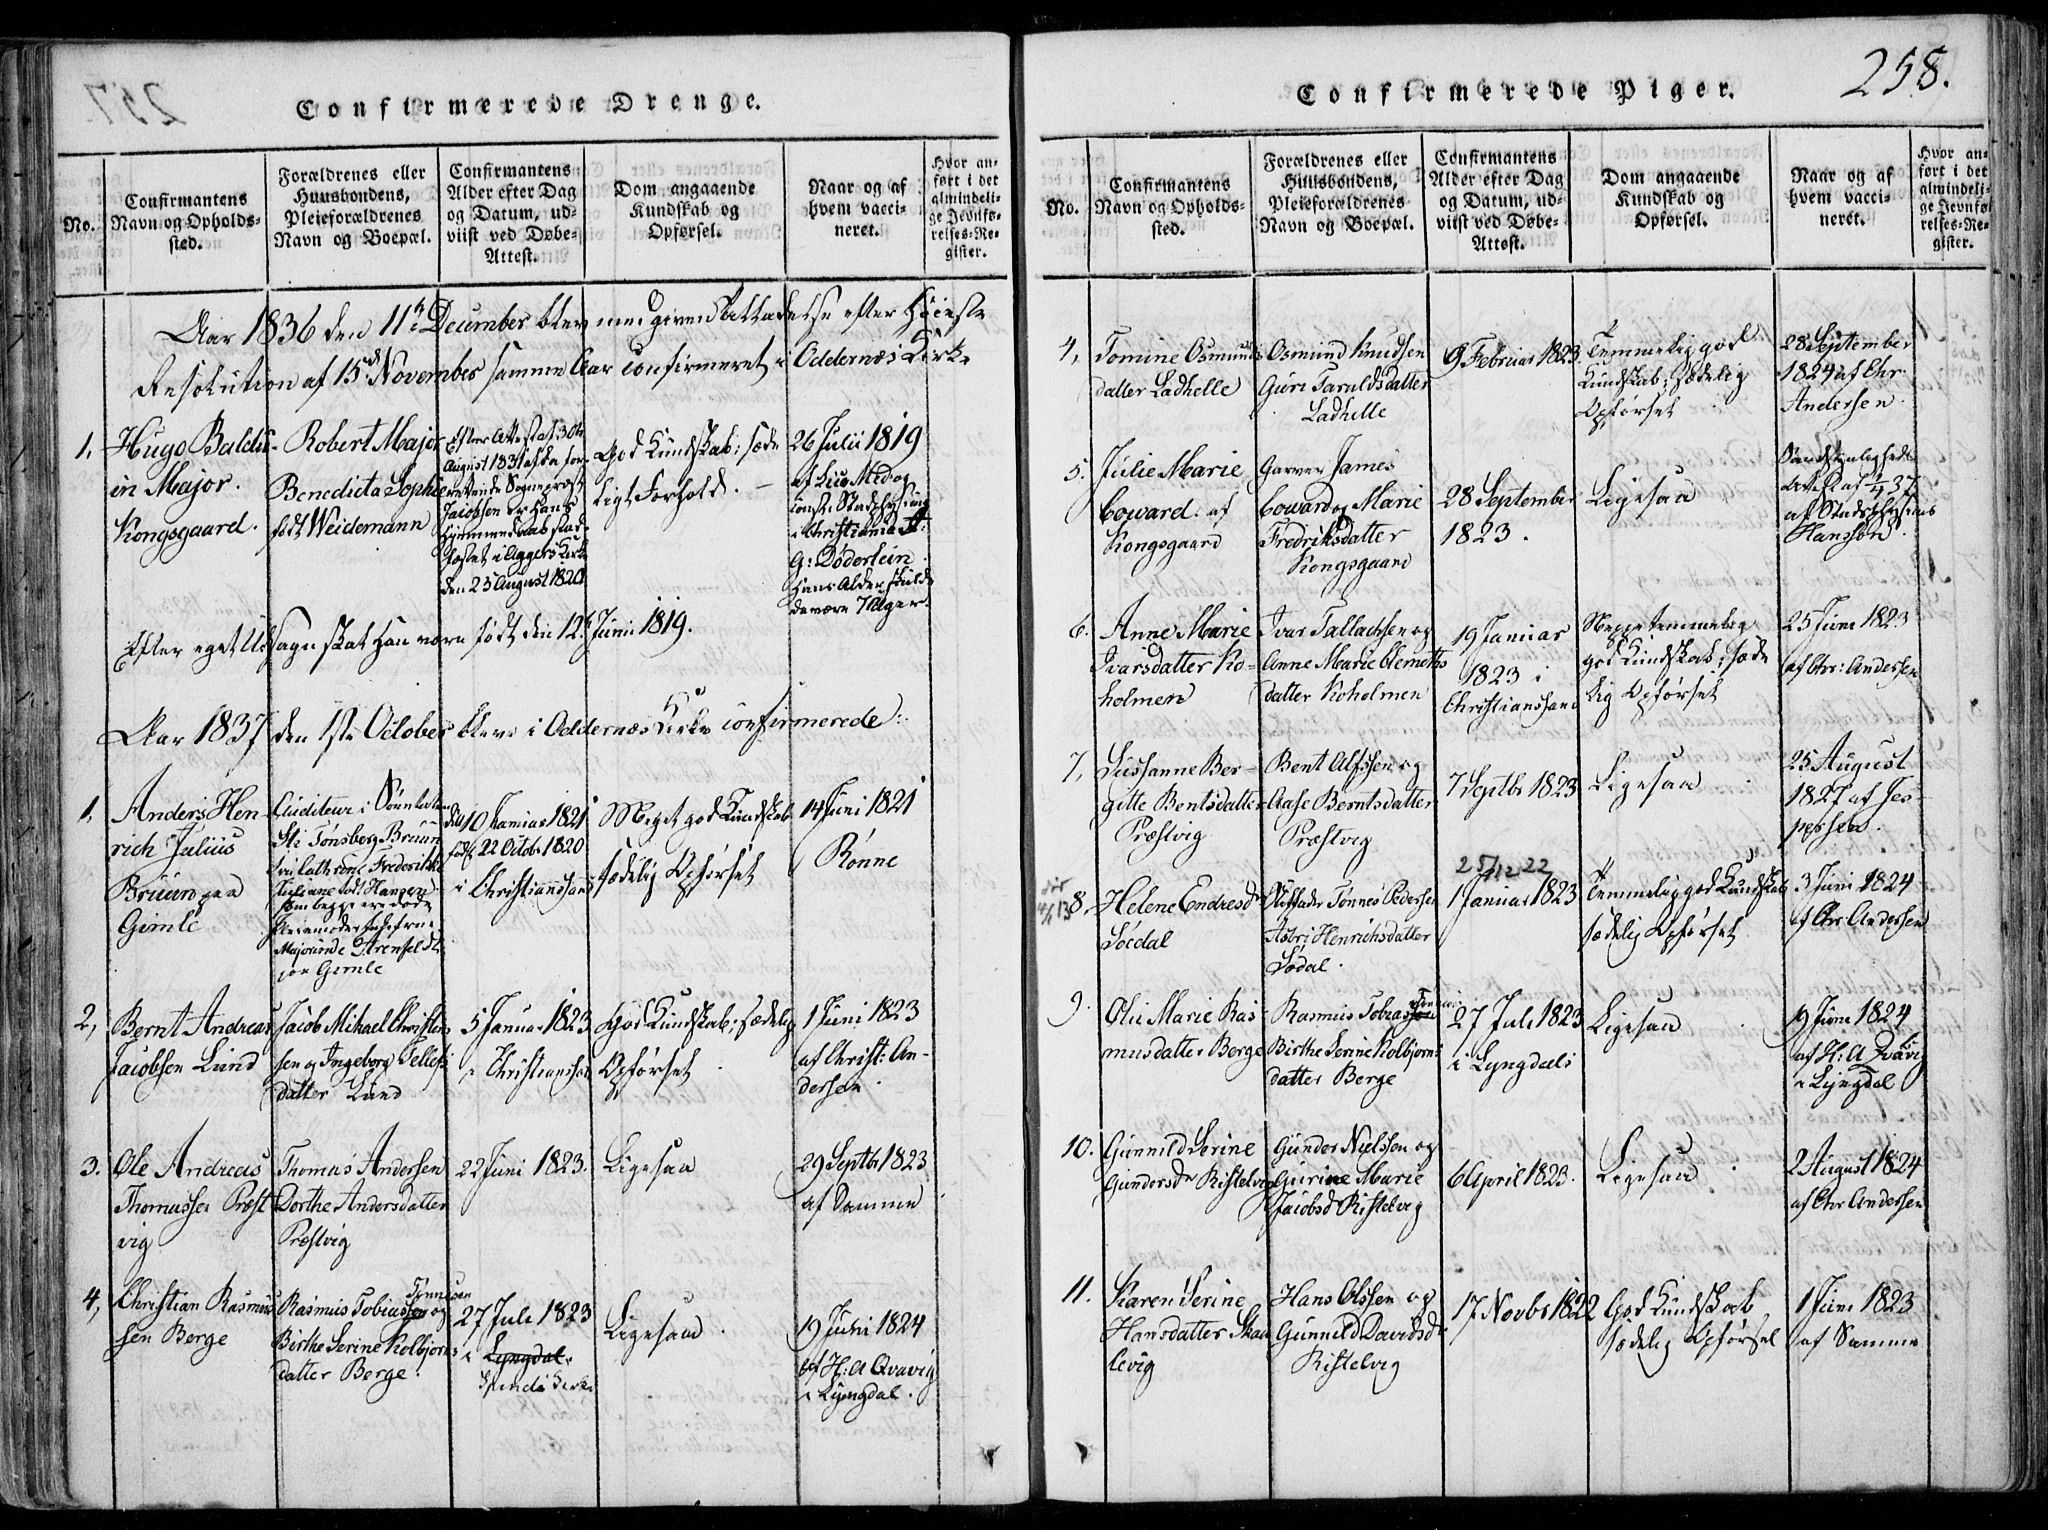 Confirmerede Drenge.
No.
Confirmantens
Navn og Opholds-
sted.
Forældrenes eller
Huusbondens,
Pleieforældrenes
Navn og Boepæl.
Confirmantens
Alder efter Dag
og Datum, ud-
viist ved Døbe-
Attest.
Dom angaaende
Kundskab og
Opførsel.
Naar og af
hvem vacci-
neret.
Hvor an-
ført i det
almindeli-
ge Jevnfø-
relses-Re-
gister.
Aar 1836 den 11te December blev med given Tilladelse efter Høieste
Resolution af 15de November samme Aar confirmeret i Oddernæs Kirke
1,
Hugo Baldu-
in Major.
Kongsgaard.
Robert Major
Benedicta Sophie
født Weidemann
Efter Attest af 30te
August 1831 af
Sogneprest
Jacobsen er Hans
døbt i Aggers Kirke
den 25 August 1820
God Kundskab; sæde-
ligt Forhold. —
26 Julii 1819
af
const: Stadsphysicus
i Christiania
G: Døderlein
Hans Alder skulde
da være 7 Uger.
Efter eget Udsagn skal Han være født den 12te Junii 1819.
Aar 1837 den 1ste October bleve i Oddernæs Kirke confirmerede:
1,
Anders Hen-
rich Julius
Bruun paa
Gimle
Auditeur i
Sti Tønsberg Bruun
Frederikke
Juliane født Hansen
som begge ere døde
Pleiemoder
Majorinde Arenfeldt
paa Gimle
døbt 10 Januar 1821
født 22 Octobr 1820
i Christianssand
Meget god Kundskab
sædelig Opførsel
14 Juni 1821
Rønne
2,
Bernt Andreas
Jacobsen Lund
Jacob Mikael Christen-
sen og Ingeborg Tellefs-
datter Lund
5 Januar 1823
i Christianssand
God Kundskab; sædelig
Opførsel
1 Juni 1823
af Christ: An-
dersen
3.
Ole Andreas
Thomassen Præst
vig
Thomas Andersen
Dorthe Andersdatter
Præstvig
22 Juni 1823.
Ligesaa
29 Septbr 1823
af Samme
4,
Christian Rasmus
sen Berge
Tønnesen
Rasmus Tobiassen og
Birthe Serine Kolbjørns
datter Berge.
27 Juli 1823
i Lyngdal.
Qvinds Kirke
Ligesaa.
19 Juni 1824
af H: A Qvavig
i Lyngdal.
Confirmerede Piger.
258.
No.
Confirmantens
Navn og Opholds-
sted.
Forældrenes eller
Huusbondens,
Pleieforældrenes
Navn og Boepæl.
Confirmantens
Alder efter Dag
og Datum, ud-
viist ved Døbe-
Attest.
Dom angaaende
Kundskab og
Opførsel.
Naar og af
hvem vacci-
neret.
Hvor an-
ført i det
almindeli-
ge Jevnfø-
relses-Re-
gister.
4,
Tomine Osmunds
datter Ladhelle
Osmund Knudsen
Guri Taraldsdatter
Ladhelle
9 Februar 1823
Temmelig god
Kundskab; sædelig
Opførsel
28 September
1824 af Chr.
Andersen.
5.
Julie Marie
Coward. af
Kongsgaard
Garver James
Coward og Marie
Fredriksdatter
Kongsgaard
28 September
1823.
Ligesaa
Attest af 37
af Stadsphysicus
Hanssøn.
6.
Anne Marie
Ivarsdatter Ko-
holmen
Ivar Tallachsen og
Anne Marie Clemeths
datter Koholmen
19 Januar
1823 i
Christianssand
Neppe temmelig
god Kundskab; sæde
lig Opførsel
25 Juni 1823
af Chr: Andersen
7,
Sussanne Ber-
gitte Bentsdatter
Præstvig
Bent Alfssen og
Aase Berntsdatter
Præstvig
7 Septbr 1823
Ligesaa
25 August
1827 af Jes-
persen.
8.
Helene Endresdr
Søedal
Stiffader Tønnes Pedersen
Asbri Henrichsdatter
Sødal.
25/12 22
1 Januar 1823
Temmelig god Kundskab
sædelig Opførsel
3 Juni 1824
af Chr Andersen
9.
Olie Marie Ras-
musdatter Berge
Tønnesen
Rasmus Tobiassen
Birthe Serine Kolbjørns
datter Berge
27 Juli 1823
i Lyngdals
Ligesaa
19 Juni 1824
af H: A Qvavig
i Lyngdal
10.
Gunnild Serine
Gundersdr Ristelvig
Gunder Nielssen og
Gurine Marie
Jacobsd Ristelvig
6 April 1823.
Ligesaa
2 August 1824
af Chr Andersen
11.
Karen Serine
Hansdatter Skaa
levig
Hans Olssen og
Gunnild Davidsdr
Ristelvig
17 Novbr 1822
God Kundskab
sædelig Opførsel
1 Juni 1823
af Samme